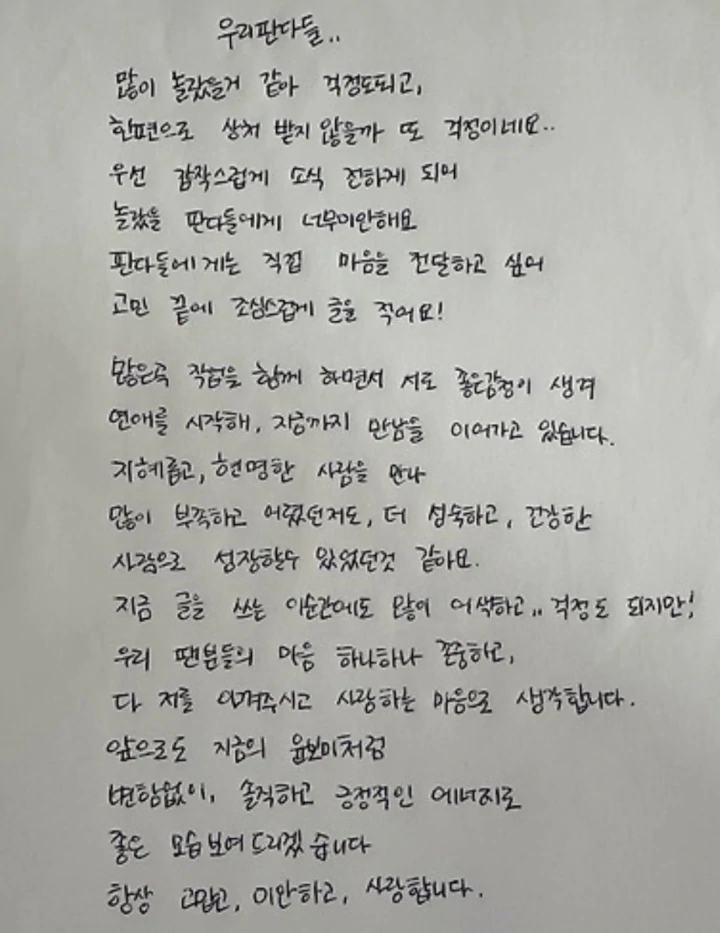 우리판다들..
많이 놀랐을거 같아 걱정도되고,
한편으로 상처 받지 않을까 또 걱정이네요..
우선 갑작스럽게 소식 전하게 되어
놀랐을 판다들에게 너무미안해요
판다들에게는 직접 마음을 전달하고 싶어
고민 끝에 조심스럽게 글을 적어요!
많은곡 작업을 함께 하면서 서로 좋은감정이 생겨
연애를 시작해, 지금까지 만남을 이어가고 있습니다.
지혜롭고, 현명한 사람을 만나
많이 부족하고 어렸던저도, 더 성숙하고, 건강한
사람으로 성장할수 있었던것 같아요.
지금 글을 쓰는 이순간에도 많이 어색하고.. 걱정도 되지만!
우리 팬분들의 마음 하나하나 존중하고,
다 저를 아껴주시고 사랑하는 마음으로 생각합니다.
앞으로도 지금의 윤보미처럼
변함없이, 솔직하고 긍정적인 에너지로
좋은 모습 보여 드리겠 습니다
항상 고맙고, 미안하고, 사랑합니다.